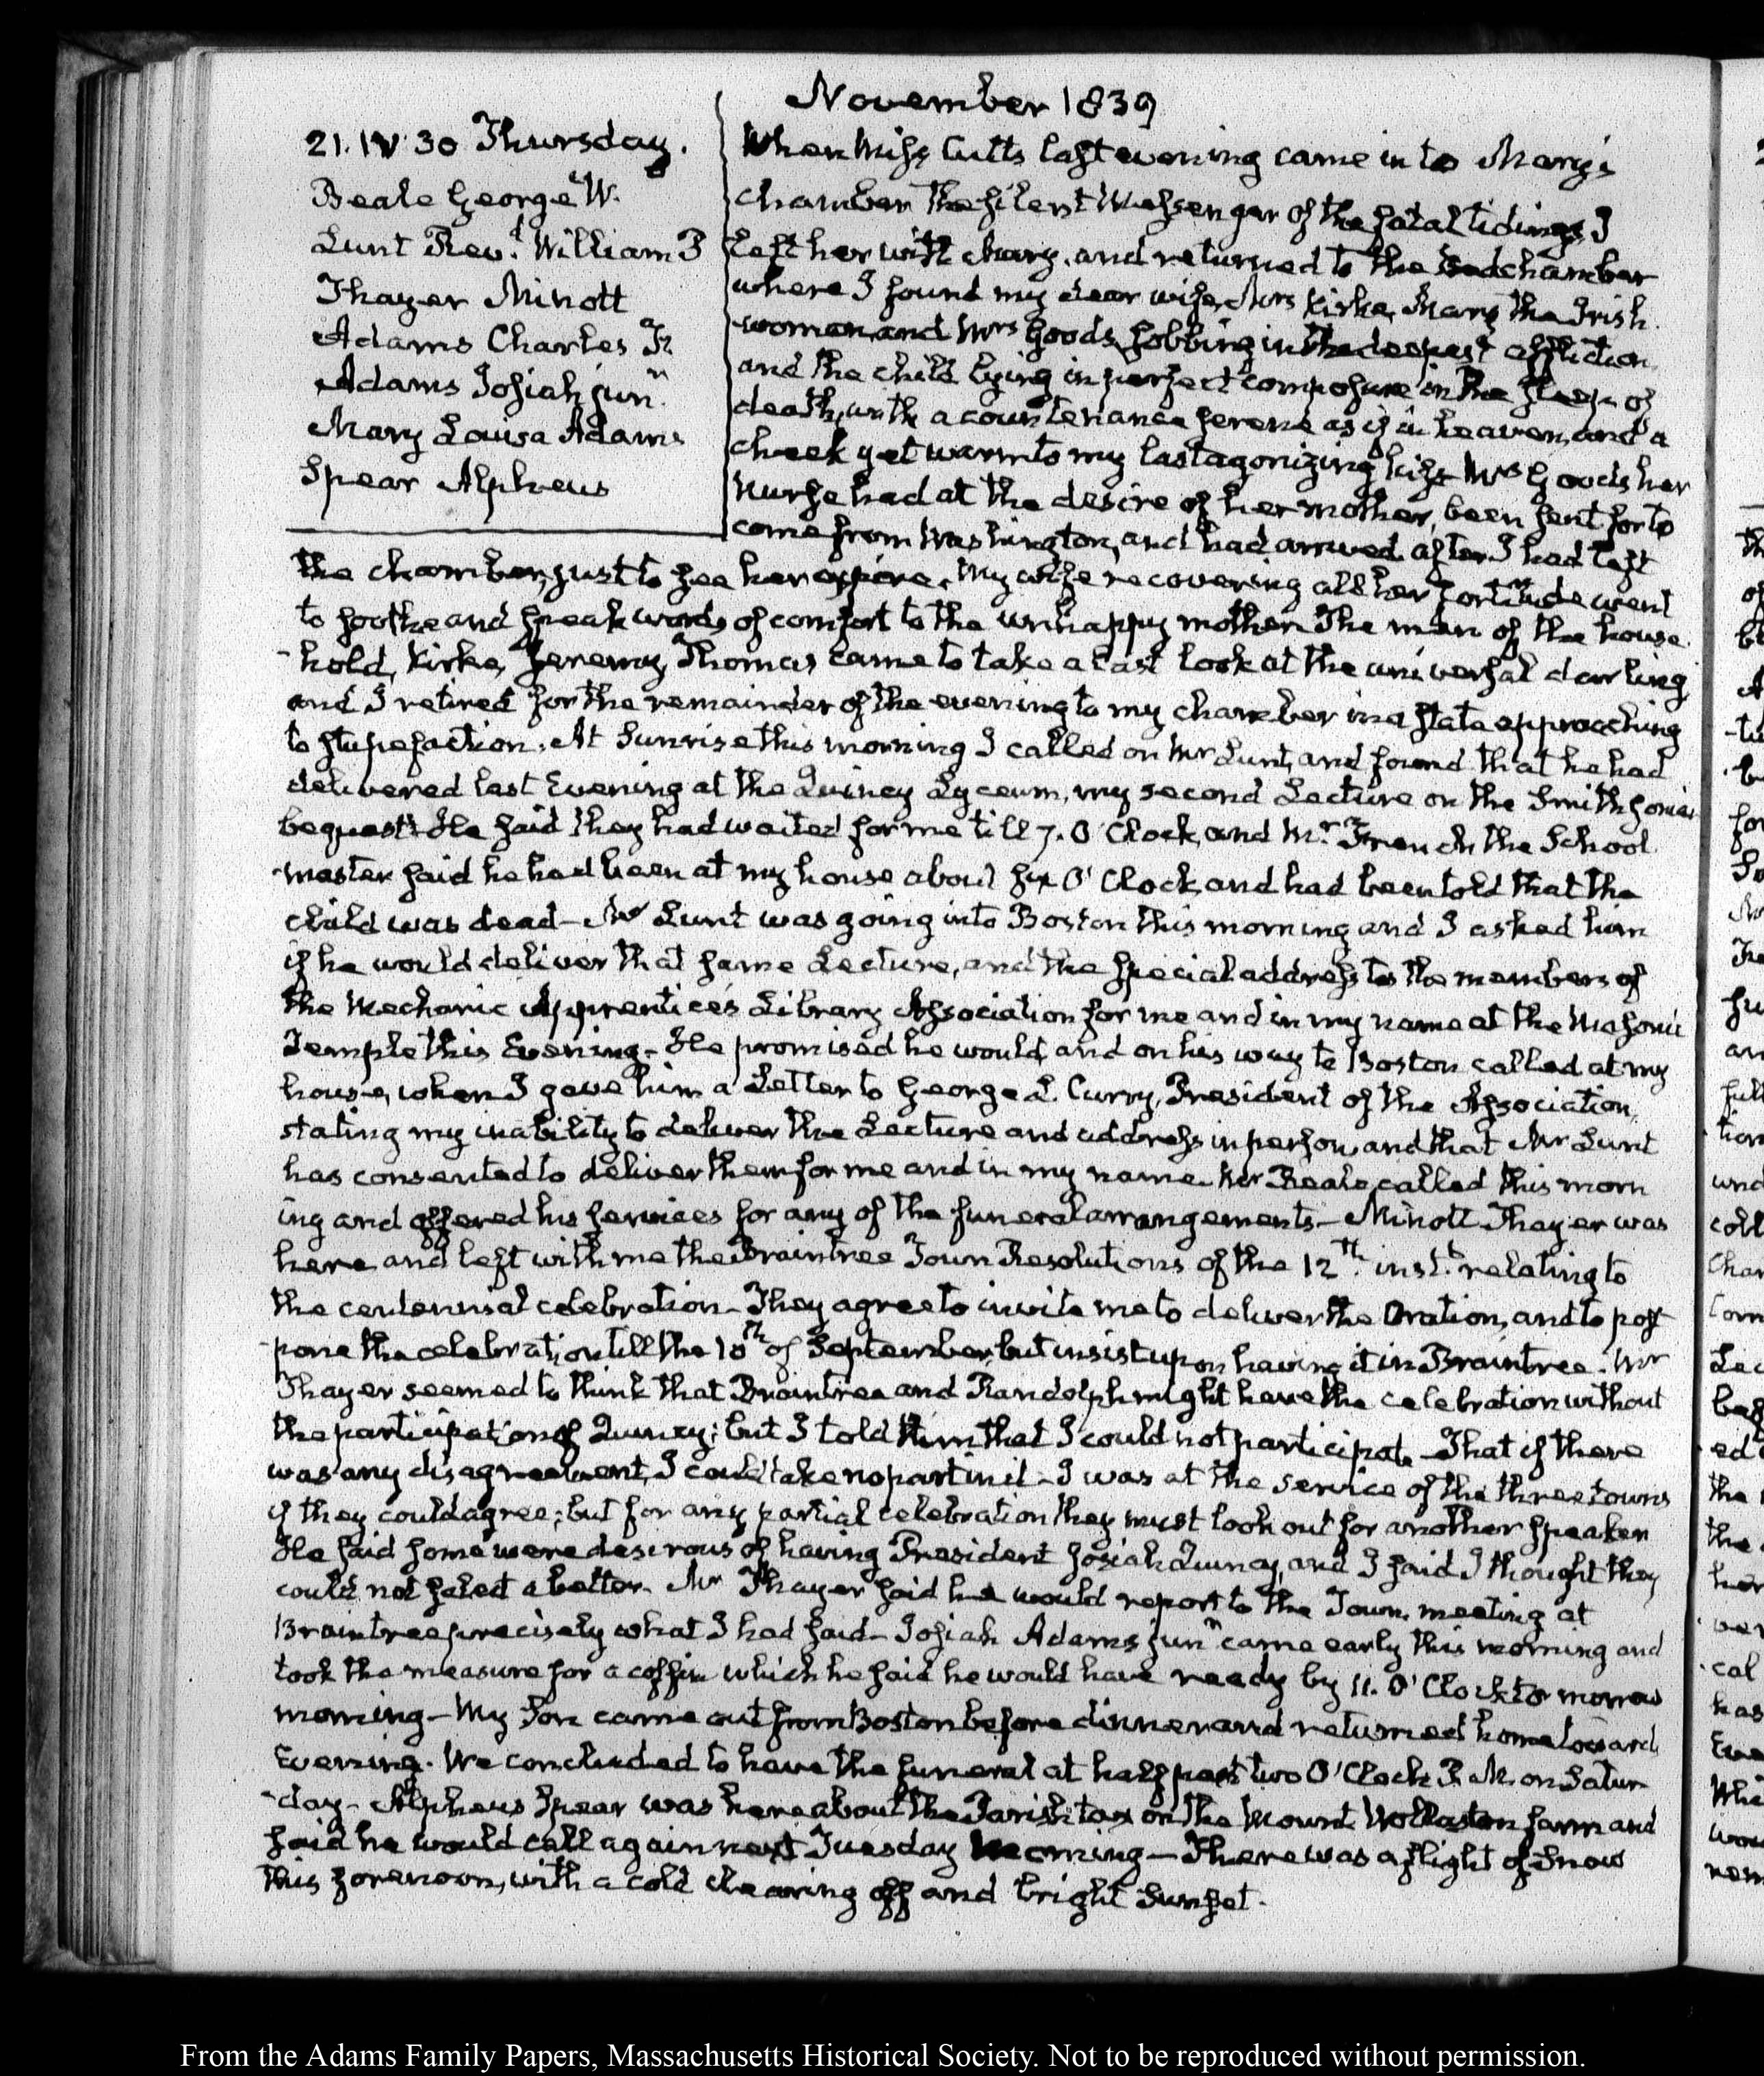 November 1839
21. IV 30 Thursday.
Beale George W.
Lunt Revd. William P
Thayer Minott
Adams Charles F.
Adams Josiah junr.
Mary Louisa Adams
Spear Alpheus
When Miss Cutts last evening came in to Mary's
chamber the silent Messenger of the fatal tidings, I
left her with Mary, and returned to the bedchamber
where I found my dear wife, Mrs Kirke, Mary the Irish
woman and Mrs Goods, sobbing in the deepest affliction
and the child lying in perfect composure in the sleep of
death, with a countenance serene as if in heaven, and a
cheek yet warm to my last agonizing kiss. Mrs Goods her
Nurse had at the desire of her mother, been sent for to
come from Washington, and had arrived after I had left
the chamber, just to see her expire. My wife recovering all her fortitude went
to soothe and speak words of comfort to the unhappy mother. The men of the house
-hold, Kirke, Jeremy, Thomas came to take a last look at the universal darling
and I retired for the remainder of the evening to my chamber in a state approaching
to stupefaction. At Sunrise this morning I called on Mr Lunt, and found that he had
delivered last Evening at the Quincy Lyceum, my second Lecture on the Smithsonian
bequest. He said they had waited for me till 7. O'Clock, and Mr. French the School
-master said he had been at my house about six O'Clock, and had been told that the
child was dead - Mr Lunt was going into Boston this morning and I asked him
if he would deliver that same Lecture, and the special address to the members of
the Mechanic Apprentices Library Association for me and in my name at the Masonic
Temple this Evening - He promised he would, and on his way to Boston called at my
house, when I gave him a Letter to George L. Curry, President of the Association,
stating my inability to deliver the Lecture and address in person, and that Mr Lunt
has consented to deliver them for me and in my name. Mr Beale called this morn
ing and offered his services for any of the funeral arrangements - Minott Thayer was
here and left with me the Braintree Town Resolutions of the 12th. inst. relating to
the centennial celebration - They agree to invite me to deliver the Oration, and to post
-pone the celebration till the 10th of September, but insist upon having it in Braintree. Mr
Thayer seemed to think that Braintree and Randolph might have the celebration without
the participation of Quincy; but I told him that I could not participate - That if there
was any disagreement, I could take no part in it - I was at the service of the three towns
if they could agree; but for any partial celebration they must look out for another speaker
He said some were desirous of having President Josiah Quincy, and I said I thought they
could not select a better. Mr Thayer said he would report to the Town meeting at
Braintree precisely what I had said - Josiah Adams junr came early this morning and
took the measure for a coffin which he said he would have ready by 11. O'Clock to morrow
morning - My Son came out from Boston before dinner and returned home towards
Evening. We concluded to have the funeral at half past two O'Clock P. M. on Satur
-day - Alpheus Spear was here about the Parish tax on the Mount Wollaston farm and
said he would call again next Tuesday Morning - There was a flight of Snow
this forenoon, with a cold clearing off and bright Sunset.
From the Adams Family Papers, Massachusetts Historical Society. Not to be reproduced without permission.